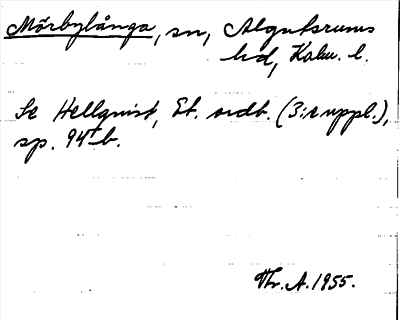 Mörbylånga, sn, Algutsrums
hd, Kalm. l.
Se Hellquist, Et. ordb. (3:e uppl.),
sp. 94 b.
Thr. A. 1955.